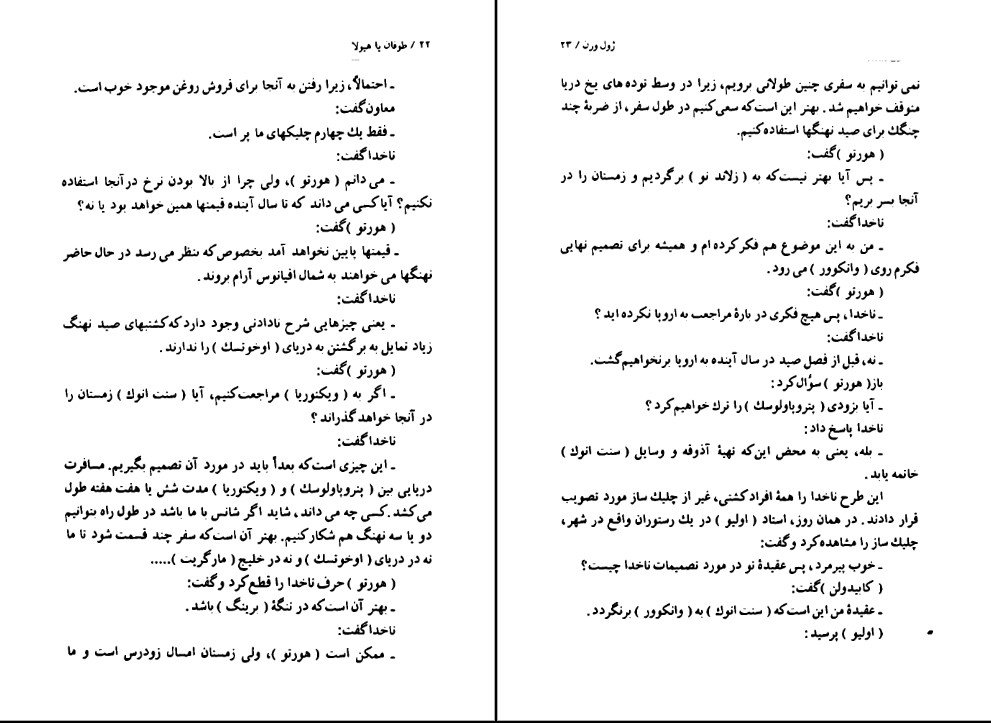 ۲۲ / طوفان یا هیولا
ـ احتمالاً، زیرا رفتن به آنجا برای فروش روغن موجود خوب است.
معاون گفت:
ـ فقط یك چهارم چلیكهای ما پر است.
ناخدا گفت:
ـ می دانم ( هورتو )، ولی چرا از بالا بودن نرخ در آنجا استفاده
نكنیم؟ آیا كسی می داند كه تا سال آینده قیمتها همین خواهد بود یا نه؟
( هورتو ) گفت:
ـ قیمتها پایین نخواهد آمد بخصوص كه بنظر می رسد در حال حاضر
نهنگها می خواهند به شمال اقیانوس آرام بروند.
ناخدا گفت:
ـ یعنی چیزهایی شرح نادادنی وجود دارد كه كشتیهای صید نهنگ
زیاد تمایل به برگشتن به دریای ( اوخوتسك ) را ندارند.
( هورتو ) گفت:
ـ اگر به ( ویكتوریا ) مراجعت كنیم، آیا ( سنت انوك ) زمستان را
در آنجا خواهد گذراند؟
ناخدا گفت:
ـ این چیزی است كه بعداً باید در مورد آن تصمیم بگیریم. مسافرت
دریایی بین ( پتروپاولوسك ) و ( ویكتوریا ) مدت شش یا هفت هفته طول
می كشد. كسی چه می داند، شاید اگر شانس با ما باشد در طول راه بتوانیم
دو یا سه نهنگ هم شكار كنیم. بهتر آن است كه سفر چند قسمت شود تا ما
نه در دریای ( اوخوتسك ) و نه در خلیج ( مارگریت ).....
( هورتو ) حرف ناخدا را قطع كرد و گفت:
ـ بهتر آن است كه در تنگهٔ ( برینگ ) باشد.
ناخدا گفت:
ـ ممكن است ( هورتو )، ولی زمستان امسال زودرس است و ما
ژول ورن / ۲۳
نمی توانیم به سفری چنین طولانی برویم، زیرا در وسط توده های یخ دریا
متوقف خواهیم شد. بهتر این است كه سعی كنیم در طول سفر، از ضربهٔ چند
چنگك برای صید نهنگها استفاده كنیم.
( هورتو ) گفت:
ـ پس آیا بهتر نیست كه به ( زلاند نو ) برگردیم و زمستان را در
آنجا بسر بریم؟
ناخدا گفت:
ـ من به این موضوع هم فكر كرده ام و همیشه برای تصمیم نهایی
فكرم روی ( وانكوور ) می رود.
( هورتو ) گفت:
ـ ناخدا، پس هیچ فكری در بارهٔ مراجعت به اروپا نكرده اید؟
ناخدا گفت:
ـ نه، قبل از فصل صید در سال آینده به اروپا برنخواهیم گشت.
باز ( هورتو ) سؤال كرد:
ـ آیا بزودی ( پتروپاولوسك ) را ترك خواهیم كرد؟
ناخدا پاسخ داد:
ـ بله، یعنی به محض این كه تهیهٔ آذوقه و وسایل ( سنت انوك )
خاتمه یابد.
این طرح ناخدا را همهٔ افراد كشتی، غیر از چلیك ساز مورد تصویب
قرار دادند. در همان روز، استاد ( اولیو ) در یك رستوران واقع در شهر،
چلیك ساز را مشاهده كرد و گفت:
ـ خوب پیرمرد، پس عقیدهٔ تو در مورد تصمیمات ناخدا چیست؟
( كابیدولن ) گفت:
ـ عقیدهٔ من این است كه ( سنت انوك ) به ( وانكوور ) برنگردد.
( اولیو ) پرسید: